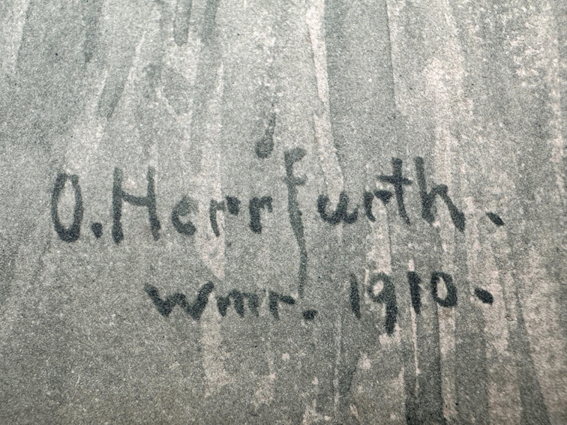 O. Herrfurth.
Wmr. 1910.